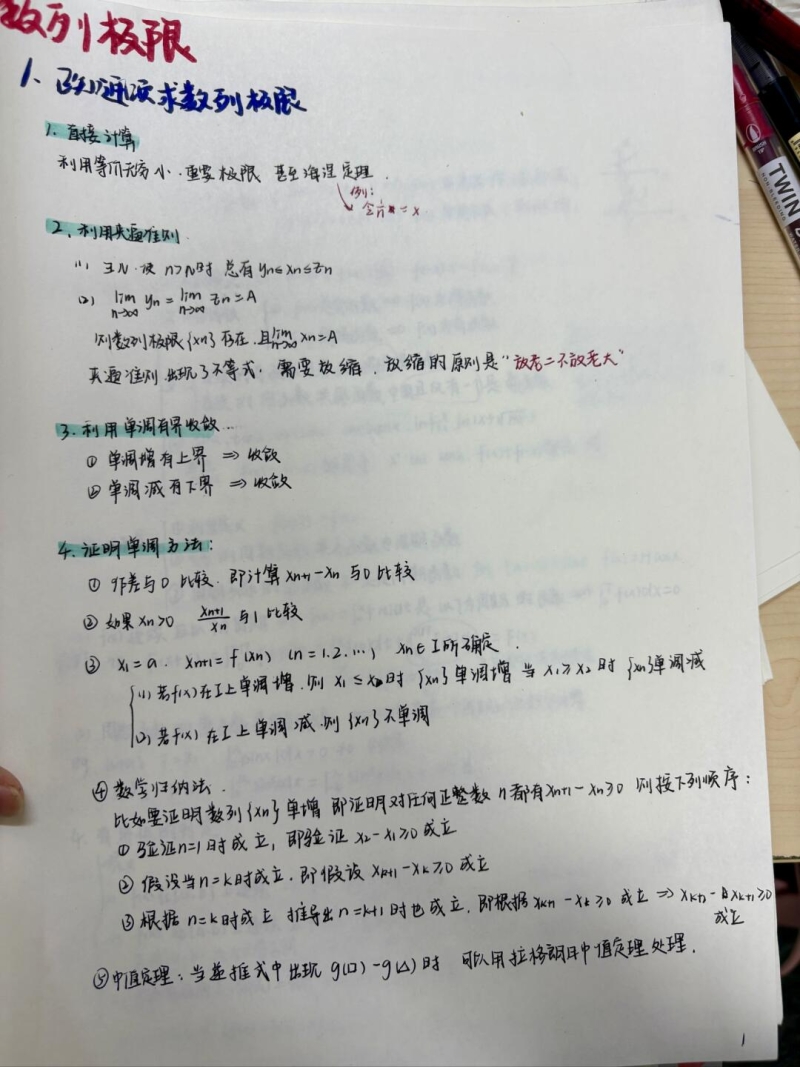 数列极限
1、已知通项求数列极限
1. 直接计算
利用等价无穷小、重要极限 甚至海涅定理.
例:
令1/n = x
2、利用夹逼准则.
(1) ∃N.使 n>N时 总有 yn≤xn≤zn
(2) lim n→∞ yn = lim n→∞ zn = A
则数列极限{xn}存在.且lim n→∞ xn=A
夹逼准则.出现了不等式,需要放缩.放缩的原则是“放老二不放老大”
3、利用单调有界收敛..
① 单调增有上界 ⇒ 收敛
② 单调减有下界 ⇒ 收敛
4.证明单调方法:
① 作差与0比较.即计算 xn+1-xn 与0比较
② 如果xn>0 xn+1/xn 与1比较
③ x1=a. xn+1=f(xn) (n=1.2.…) xn∈I所确定.
(1) 若f(x)在I上单调增.则 x1≤x2时 {xn}单调增 当 x1≥x2 时 {xn}单调减
(2) 若f(x)在I上单调减.则{xn}不单调
④ 数学归纳法.
比如要证明数列{xn}单增 即证明对任何正整数n都有xn+1-xn≥0 则按下列顺序:
① 验证n=1时成立,即验证 x2-x1≥0成立
② 假设当n=k时成立.即假设 xk+1-xk≥0成立
③ 根据 n=k时成立 推导出n=k+1时也成立.即根据xk+1-xk≥0 成立 ⇒ xk+2-xk+1≥0
成立
⑤中值定理:当递推式中出现 g(□)-g(△)时 可以用拉格朗日中值定理处理.
1
TWIN